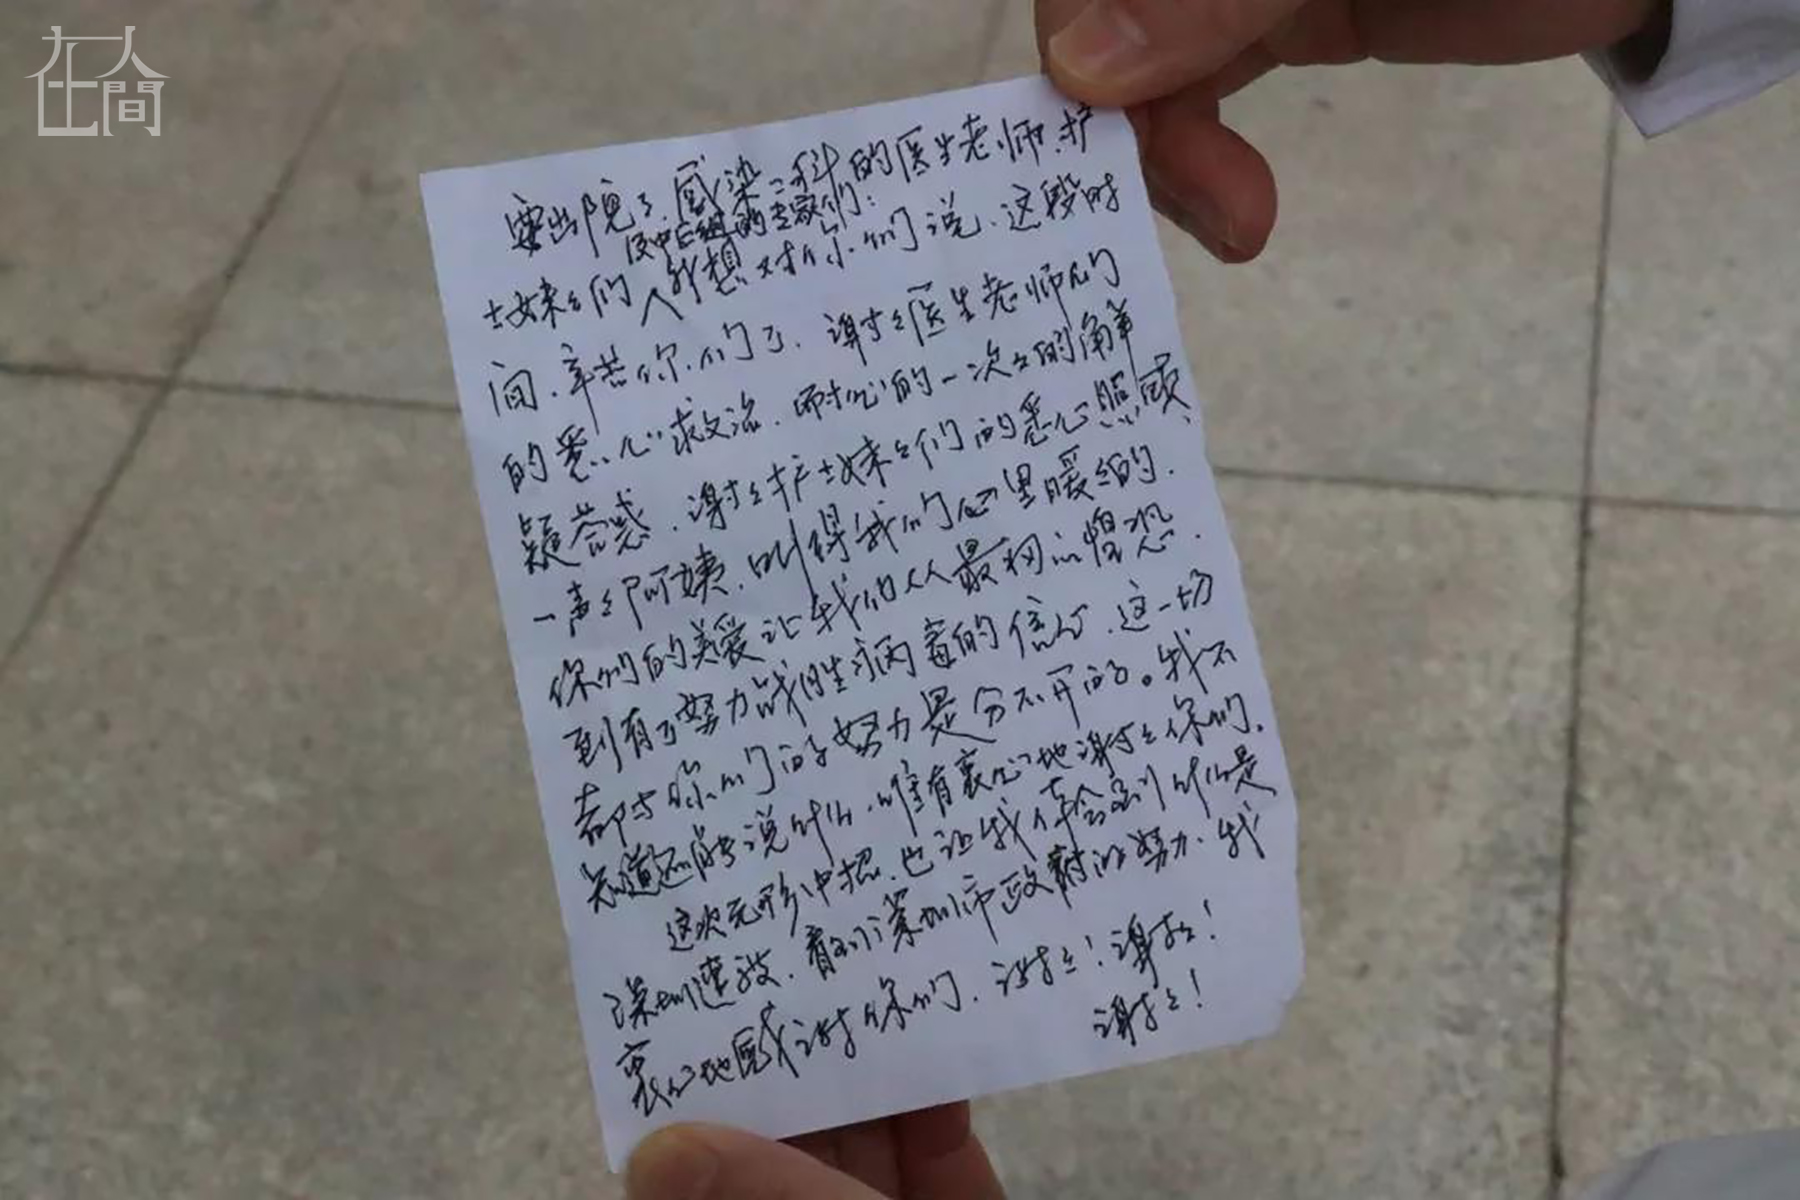 在人間
要出院了、感染二科的医生老师、护
及中区组的专家们:
士妹々们 我想对你们说、这段时
间、辛苦你们了、谢々医生老师们
的悉心救治、耐心的一次々的解
疑答惑、谢々护士妹々们的悉心照顾、
一声々阿姨、叫得我们心里暖々的、
你们的关爱让我们从最初的惶恐、
到有了努力战胜病毒的信心、这一切
都与你们的努力是分不开的。我不
知道还能说什么、唯有衷心地谢々你们。
这次无形中招、也让我体会到什么是
深圳速度、看到深圳市政府的努力、我
衷心地感谢你们、谢々!谢々!
谢々!